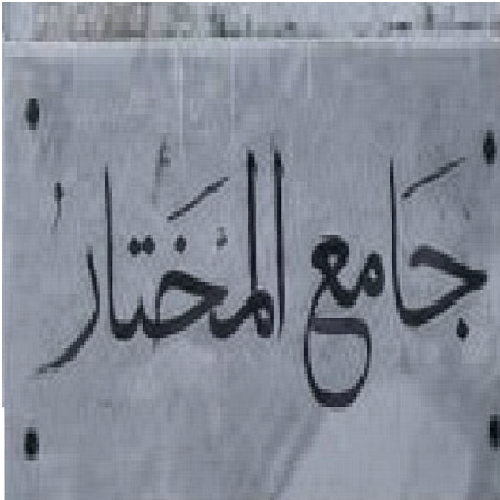 جامع المختار